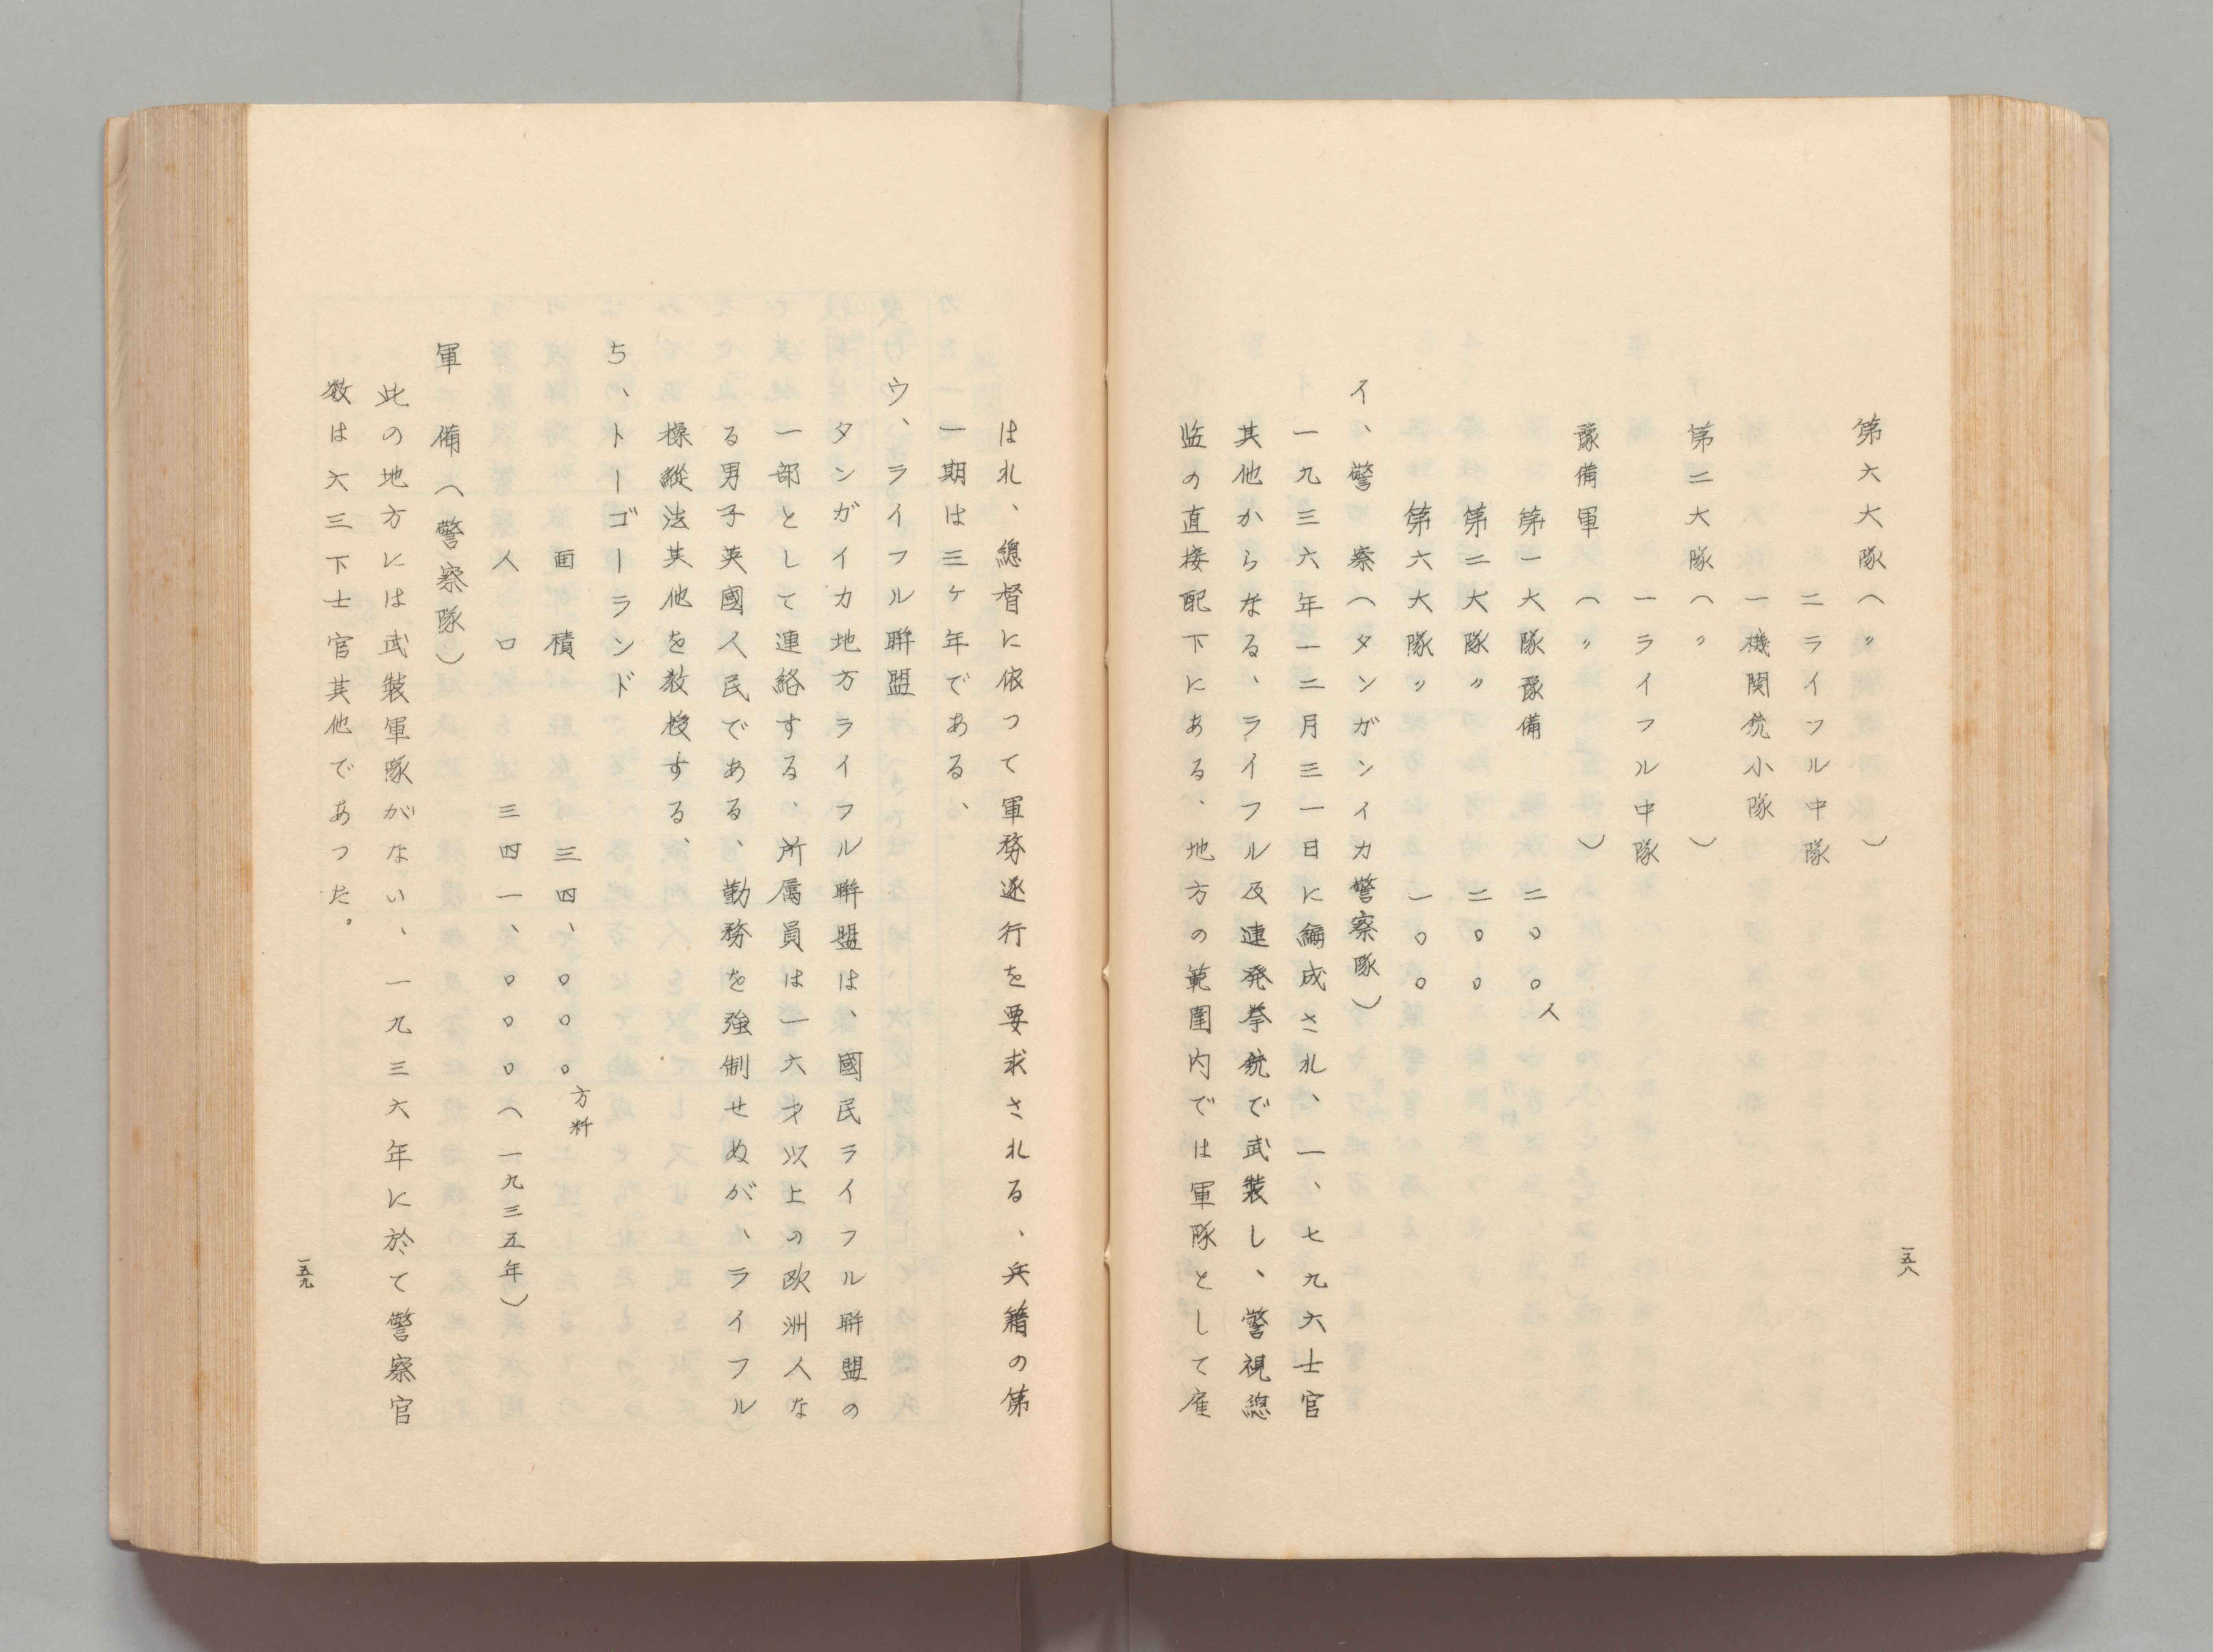 第六大隊（〃　　　）
二ライフル中隊
一機関銃小隊
第二大隊（〃　　　）
一ライフル中隊
豫備軍（〃　　　）
第一大隊豫備　二〇〇人
第二大隊〃　二〇〇
第六大隊〃　一〇〇
イ、警察（タンガンイカ警察隊）
一九三六年一二月三一日に編成され、一、七九六士官
其他からなる、ライフル及連発拳銃で武装し、警視総
監の直接配下にある、地方の範囲内では軍隊として雇
一五八
は れ、總督に依つて軍務遂行を要求される、兵籍の第
一期は三ヶ年である、
ウ、ライフル聯盟
タンガイカ地方ライフル聯盟は、國民ライフル聯盟の
一部として連絡する、所属員は一六才以上の欧洲人な
る男子英國人民である、勤務を強制せぬが、ライフル
操縦法其他を教授する、
５、トーゴーランド
面積　三四、〇〇〇方粁
人口　三四一、〇〇〇（一九三五年）
軍備（警察隊）
此の地方には武装軍隊がない、一九三六年に於て警察官
数は六三下士官其他であつた。
一五九